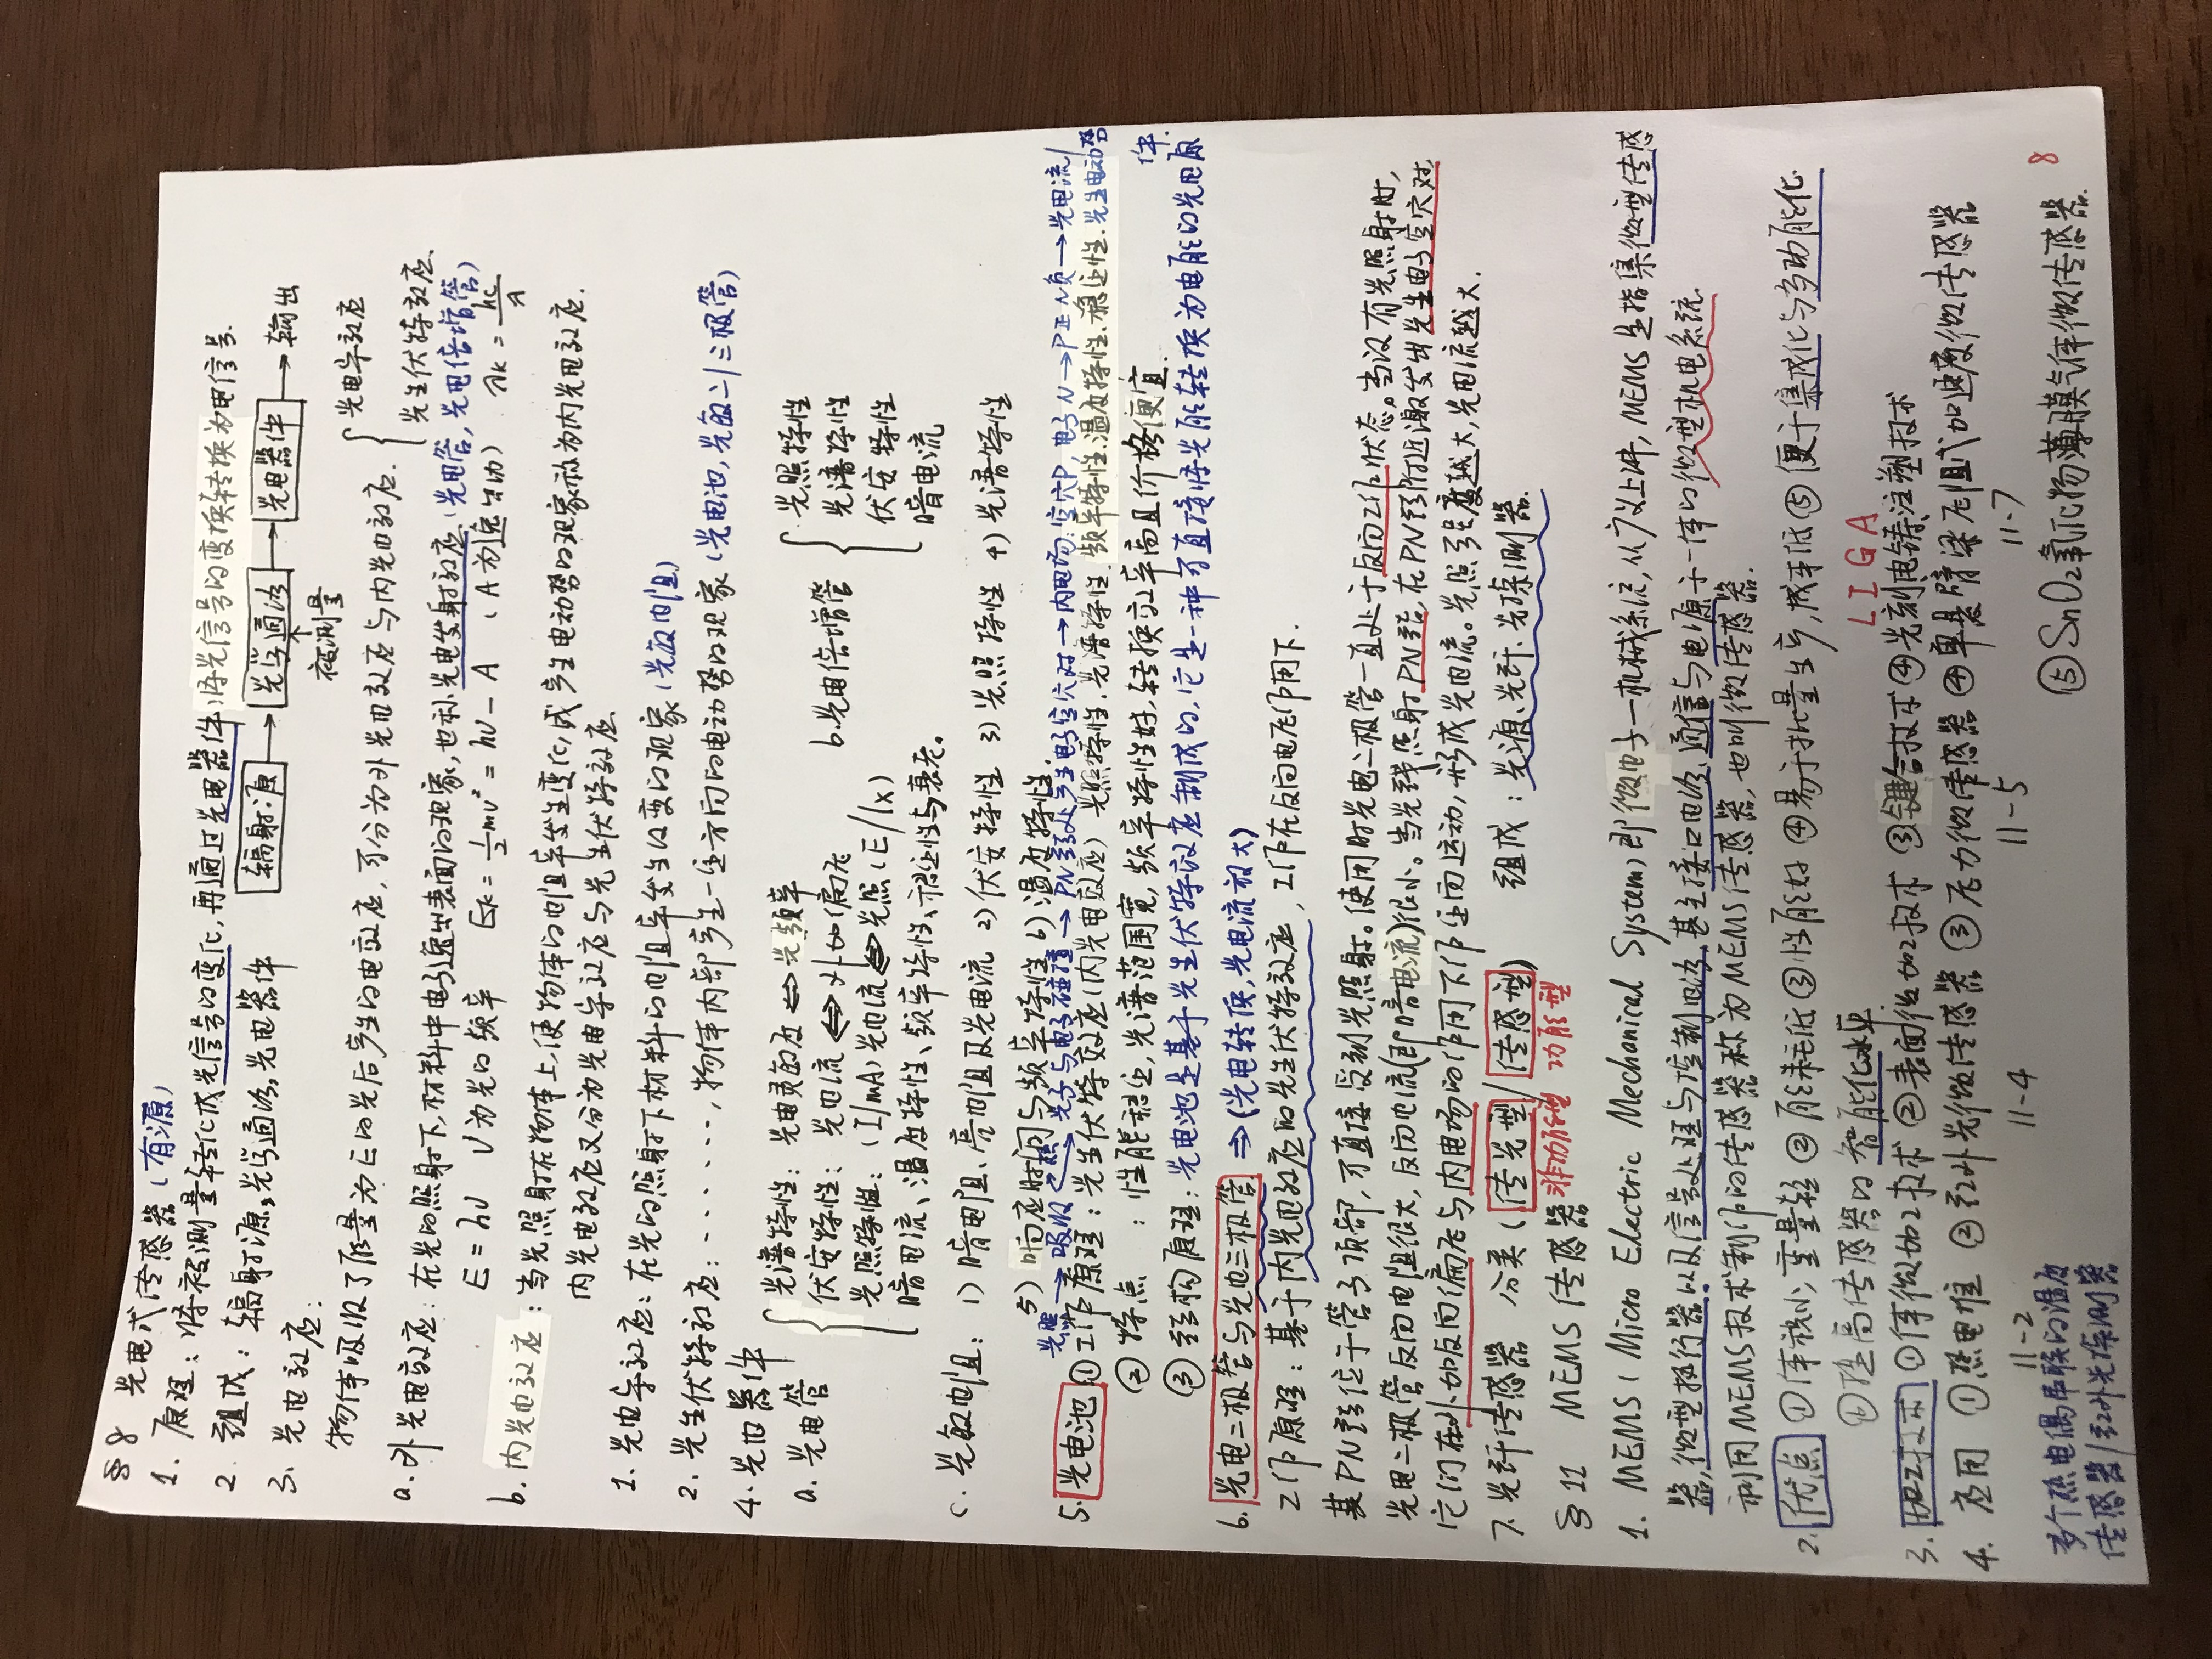 §8 光电式传感器(有源)
1. 原理：将被测量转化成光信号的变化,再通过光电器件,将光信号的变换转换为电信号.
2. 组成：辐射源,光学通路,光电器件
辐射源→光学通路→光电器件→输出
被测量
3. 光电效应：
物体吸收了能量为E的光后产生的电效应,可分为外光电效应与内光电效应.
光电导效应
光生伏特效应.
a. 外光电效应：在光的照射下,材料中电子逸出表面的现象,也称光电发射效应.(光电管,光电倍增管)
E=hν ν为光的频率 Ek=½mv²=hν-A (A为逸出功) λk=hc/A
b. 内光电效应：当光照射在物体上,使物体的电阻率发生变化,或产生电动势的现象称为内光电效应.
内光电效应又分为光电导效应与光生伏特效应.
1. 光电导效应：在光的照射下材料的电阻率发生改变的现象(光敏电阻)
2. 光生伏特效应：······,物体内部产生一定方向的电动势的现象(光电池,光敏二/三极管)
4. 光电器件
a. 光电管
光谱特性：光电灵敏度⇔光频率
伏安特性：光电流⇔外加偏压
光照特性：(I/mA)光电流⇔光照(E/lx)
暗电流、温度特性、频率特性、稳定性与衰老。
b. 光电倍增管
光照特性
光谱特性
伏安特性
暗电流
c. 光敏电阻：1) 暗电阻、亮电阻及光电流 2) 伏安特性 3) 光照特性 4) 光谱特性
5) 响应时间与频率特性 6) 温度特性.
光照→吸收 光子与电子碰撞→PN结处产生电子空穴对→内电场:空穴P,电子N→P正N负→光电流/
5. 光电池 ①工作原理：光生伏特效应(内光电效应) 光照特性.光谱特性.频率特性.温度特性.稳定性.光生电动势
②特点：性能稳定,光谱范围宽,频率特性好,转换效率高且价格便宜.
③结构原理：光电池是基于光生伏特效应制成的,它是一种可直接将光能转换为电能的光电原
件.
6. 光电二极管与光电三极管 ⇒(光电转换,光电流放大)
工作原理：基于内光电效应的光生伏特效应,工作在反向电压作用下.
其PN结位于管子顶部,可直接受到光照射。使用时光电二极管一直处于反向工作状态。当没有光照射时,
光电二极管反向电阻很大,反向电流(即暗电流)很小。当光线照射PN结,在PN结附近激发出光生电子空穴对,
它们在外加反向偏压与内电场的作用下作定向运动,形成光电流。光照强度越大,光电流越大.
7. 光纤传感器 分类(传光型/传感型) 组成：光源、光纤、光探测器.
非功能型 功能型
§11 MEMS传感器
1. MEMS(Micro Electric Mechanical System)即微电子一机械系统,从广义上讲,MEMS是指集微型传感
器,微型执行器以及信号处理与控制电路.甚至接口电路、通信与电源于一体的微型机电系统.
利用MEMS技术制作的传感器称为MEMS传感器,也叫微传感器.
2. 优点 ①体积小,重量轻 ②能耗低 ③性能好 ④易于批量生产,成本低 ⑤便于集成化与多功能化.
①提高传感器的智能化水平.
LIGA
3. 加工技术 ①体微加工技术 ②表面微加工技术 ③键合技术 ④光刻、电铸、注塑技术
4. 应用 ①热电堆 ②红外光微传感器 ③压力微传感器 ④单悬臂梁压阻式加速度微传感器
11-2 11-4 11-5 11-7
多个热电偶串联的温度
传感器/红外光探测器
⑤SnO2氧化物薄膜气体微传感器.
8